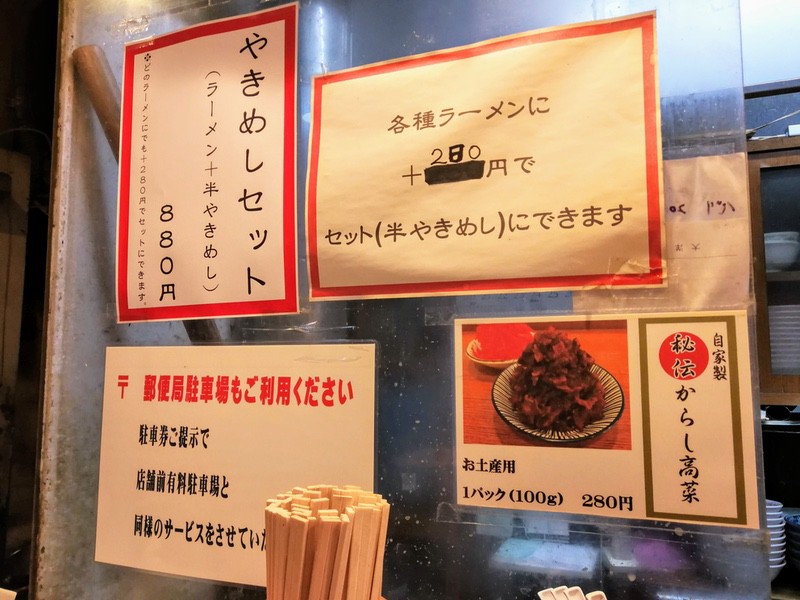 やきめしセット
(ラーメン+半やきめし)
880円
※どのラーメンにでも+280円でセットにできます。
各種ラーメンに
+280円で
セット(半やきめし)にできます
〒 郵便局駐車場もご利用ください
駐車券ご提示で
店舗前有料駐車場と
同様のサービスをさせていた
自家製
秘伝からし高菜
お土産用
1パック(100g) 280円